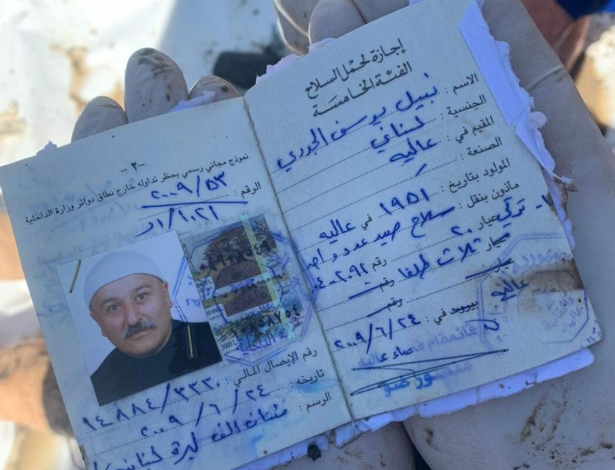 إجازة لحمل السلاح
الفئة الخامسة
الاسم: نبيل يوسف الجردي
الجنسية: لبناني
المقيم في: عاليه
الصنعة: /
المولود بتاريخ: ١٩٥١ في عاليه
مأذون بنقل: سلاح صيد عدد واحد
عيار ٢٠ رقم
عيار ثلاث طلقات رقم
عيار رقم
بيروت في: ٢٠٠٩/٦/٢٤
قائمقام قضاء عاليه
منصور ضو
-٢-
نموذج مجاني رسمي يحظر تداوله خارج نطاق دوائر وزارة الداخلية
الرقم: ٢٠٠٩/٥٣
رقم الإيصال المالي:
١٤٨٨٤/٣٣٣٠
تاريخه: ٢٠٠٩/٦/٢٤
الرسم:
الف ليرة لبنانية